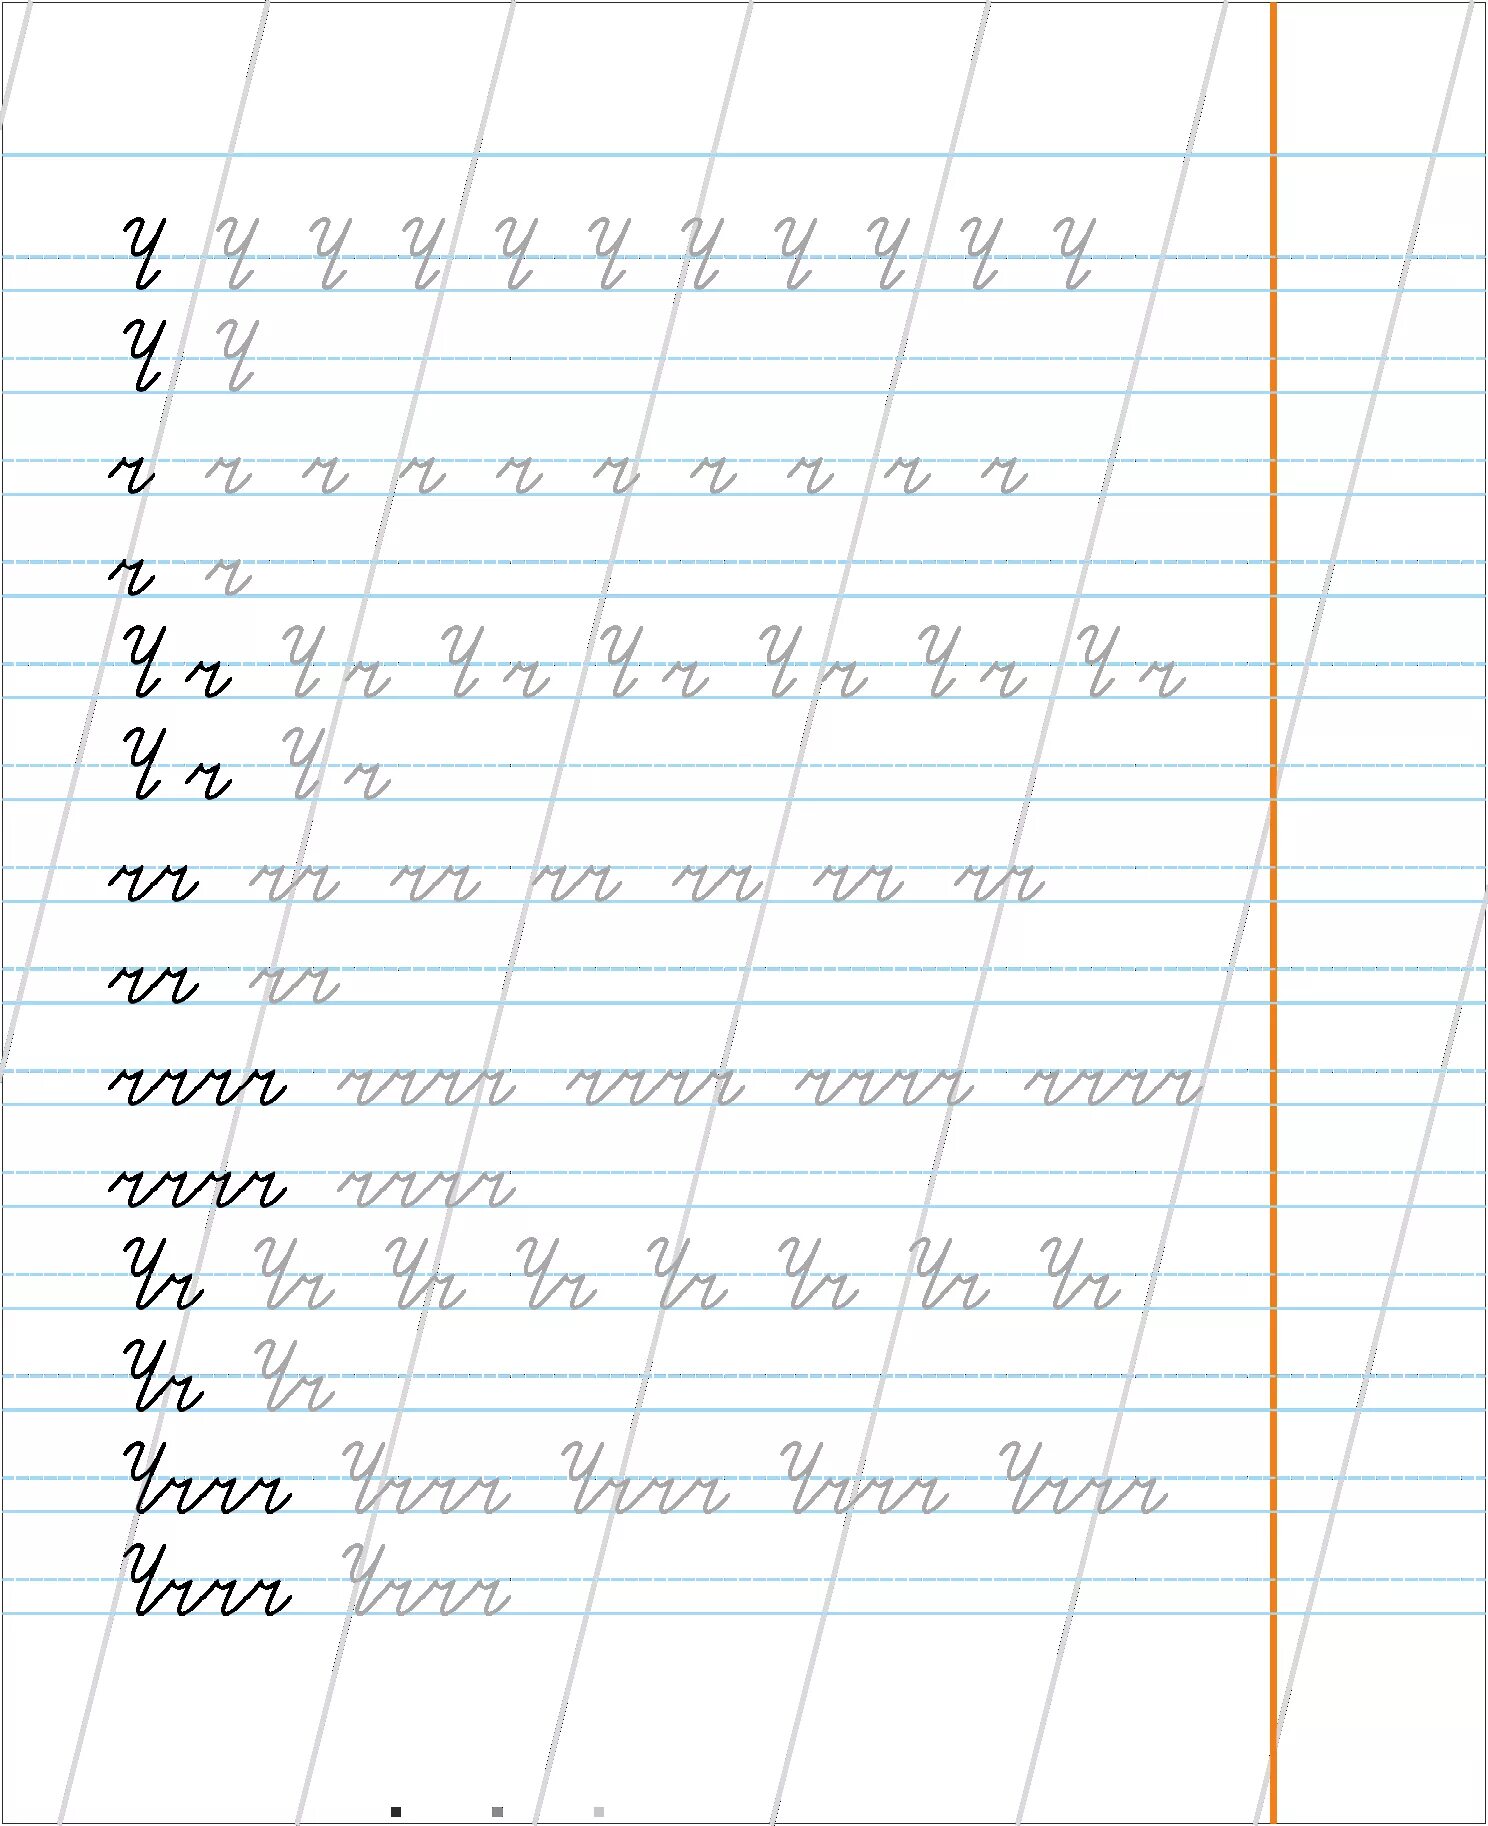 Ч Ч Ч Ч Ч Ч Ч Ч Ч Ч Ч
Ч Ч
ч ч ч ч ч ч ч ч ч ч
ч ч
Ч ч Ч ч Ч ч Ч ч Ч ч Ч ч Ч ч
Ч ч Ч ч
чч чч чч чч чч чч чч
чч чч
чччч чччч чччч чччч чччч
чччч чччч
Чч Чч Чч Чч Чч Чч Чч Чч
Чч Чч
Чччч Чччч Чччч Чччч Чччч
Чччч Чччч